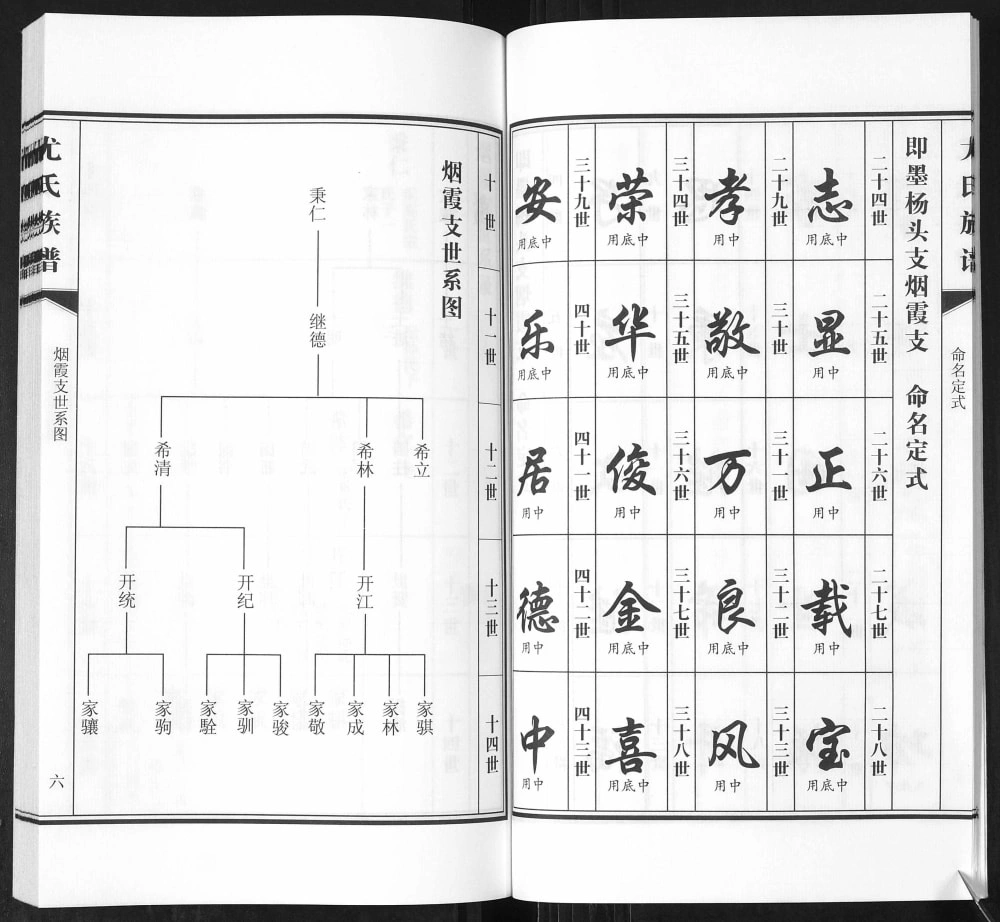 尤氏族谱
命名定式
即墨杨头支烟霞支 命名定式
二十四世
志
中底用
二十五世
显
中用
二十六世
正
中用
二十七世
载
中用
二十八世
宝
中底用
二十九世
孝
中用
三十世
敬
中底用
三十一世
万
中用
三十二世
良
中底用
三十三世
风
中用
三十四世
荣
中底用
三十五世
华
中底用
三十六世
俊
中用
三十七世
金
中底用
三十八世
喜
中底用
三十九世
安
中底用
四十世
乐
中底用
四十一世
居
中用
四十二世
德
中用
四十三世
中
中用
十世
十一世
十二世
十三世
十四世
烟霞支世系图
秉仁
继德
希立
希林
希清
开江
开纪
开统
家骐
家林
家成
家敬
家骏
家驯
家駩
家驹
家骧
尤氏族谱
烟霞支世系图
六